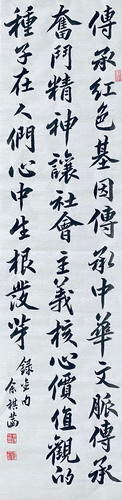 傳承紅色基因傳承中華文脈傳承
奮鬥精神讓社會主義核心價值觀的
種子在人們心中生根發芽